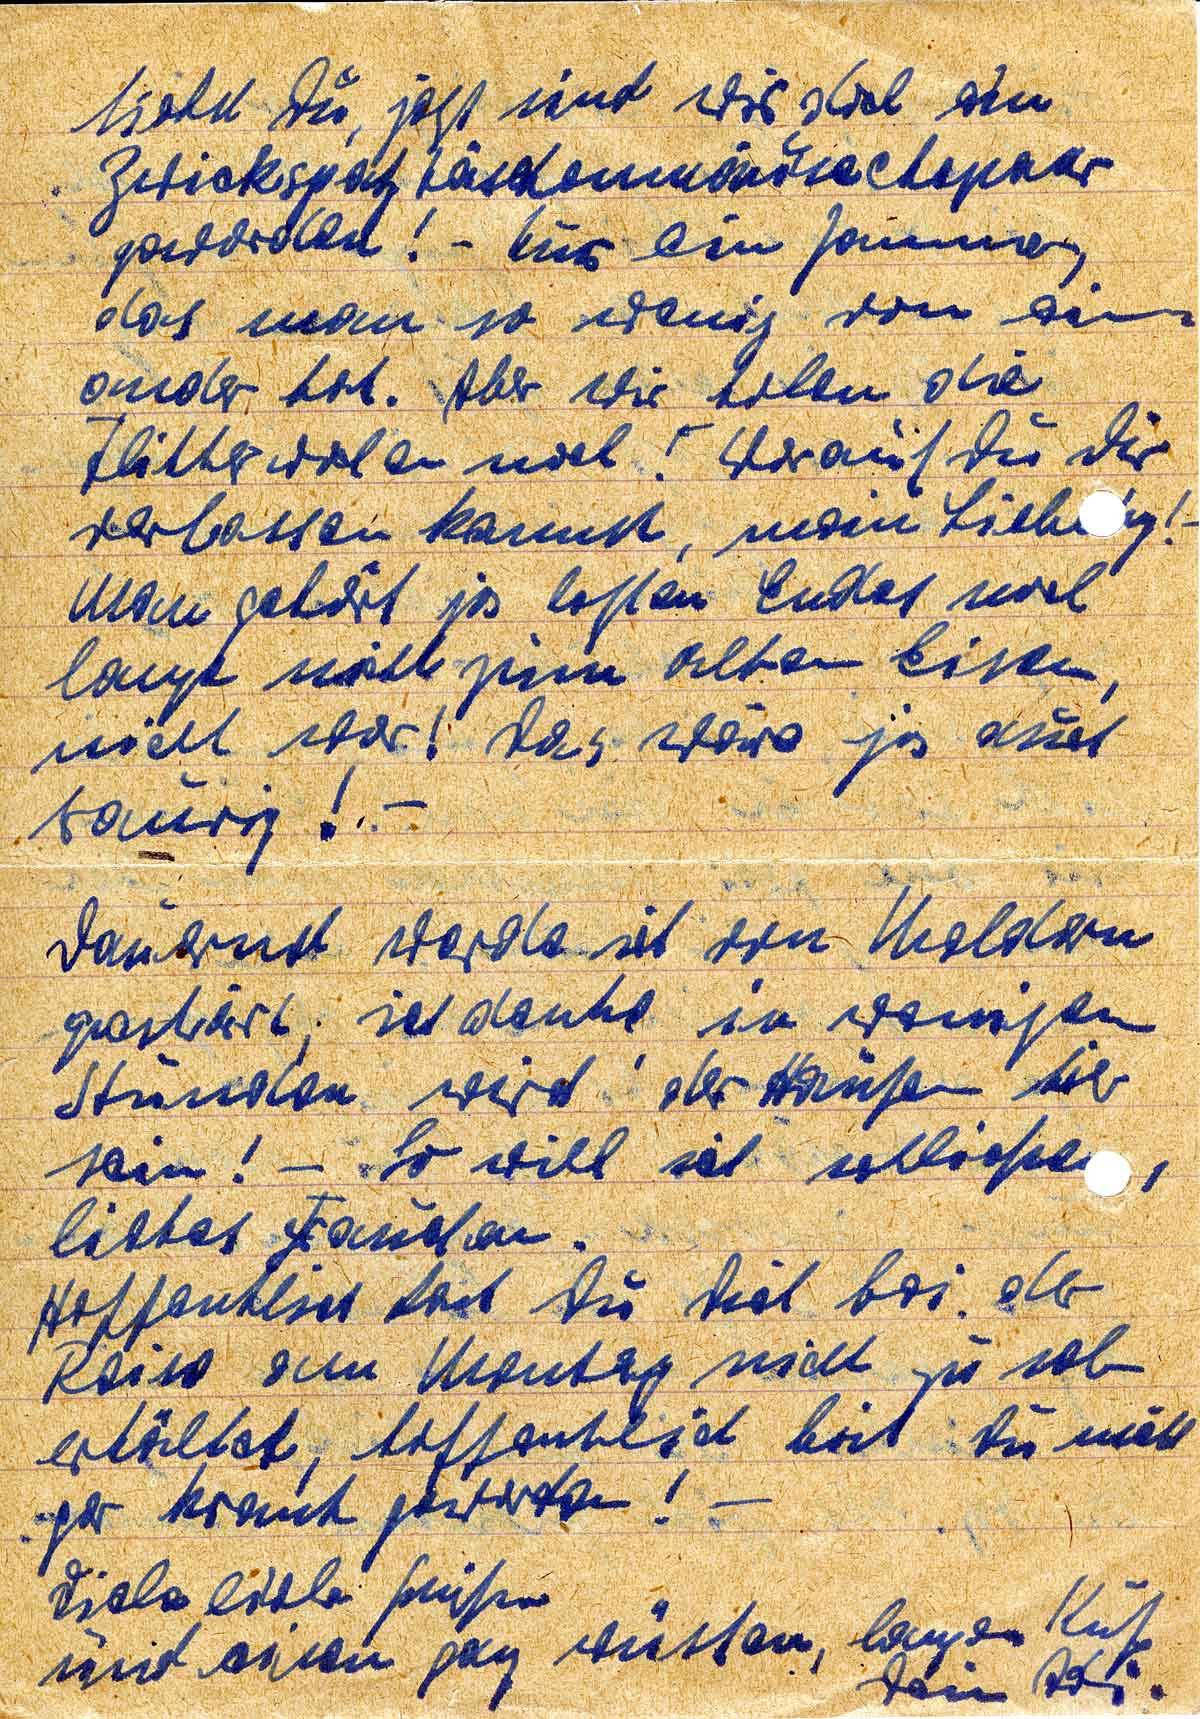 Siehst Du, jetzt sind wir doch ein
geworden! - Nur ein Jammer,
das man so wenig von ein-
ander hat. Aber wir holen die
Flitterwochen nach! Worauf Du Dir
verlassen kannst, mein Liebling! -
Man gehört ja letzten Endes noch
lange nicht zum alten Eisen,
nicht war! Das wäre ja auch
traurig! -
Dauernd werde ich von Meldern
gestört, ich denke in wenigen
Stunden wird der Haufen hier
sein! - So will ich schließen,
liebes Frauchen.
Hoffentlich hast Du Dich bei der
Reise am Montag nicht zu sehr
erkältet, hoffentlich bist Du nicht
gar krank geworden! -
Viele liebe Grüße
und einen ganz wüsten, langen Kuß
Dein